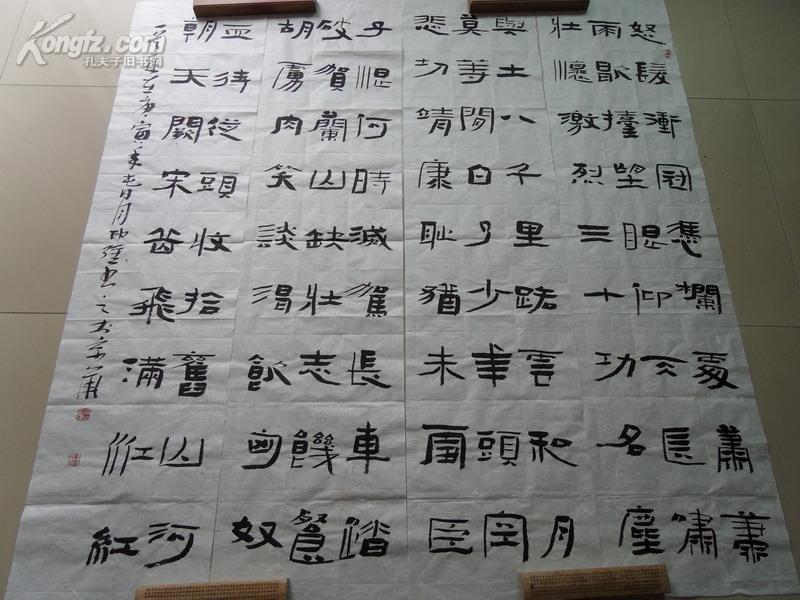 怒髮衝冠憑欄處蕭蕭
雨歇擡望眼仰天長嘯
壯懷激烈三十功名塵
與土八千里路雲和月
莫等閒白了少年頭空
悲切靖康恥猶未雪臣
子恨何時滅駕長車踏
破賀蘭山缺壯志飢餐
胡虜肉笑談渴飲匈奴
血待從頭收拾舊山河
朝天闕宋岳飛滿江紅
庚寅年
Kongfz.com
孔夫子旧书网